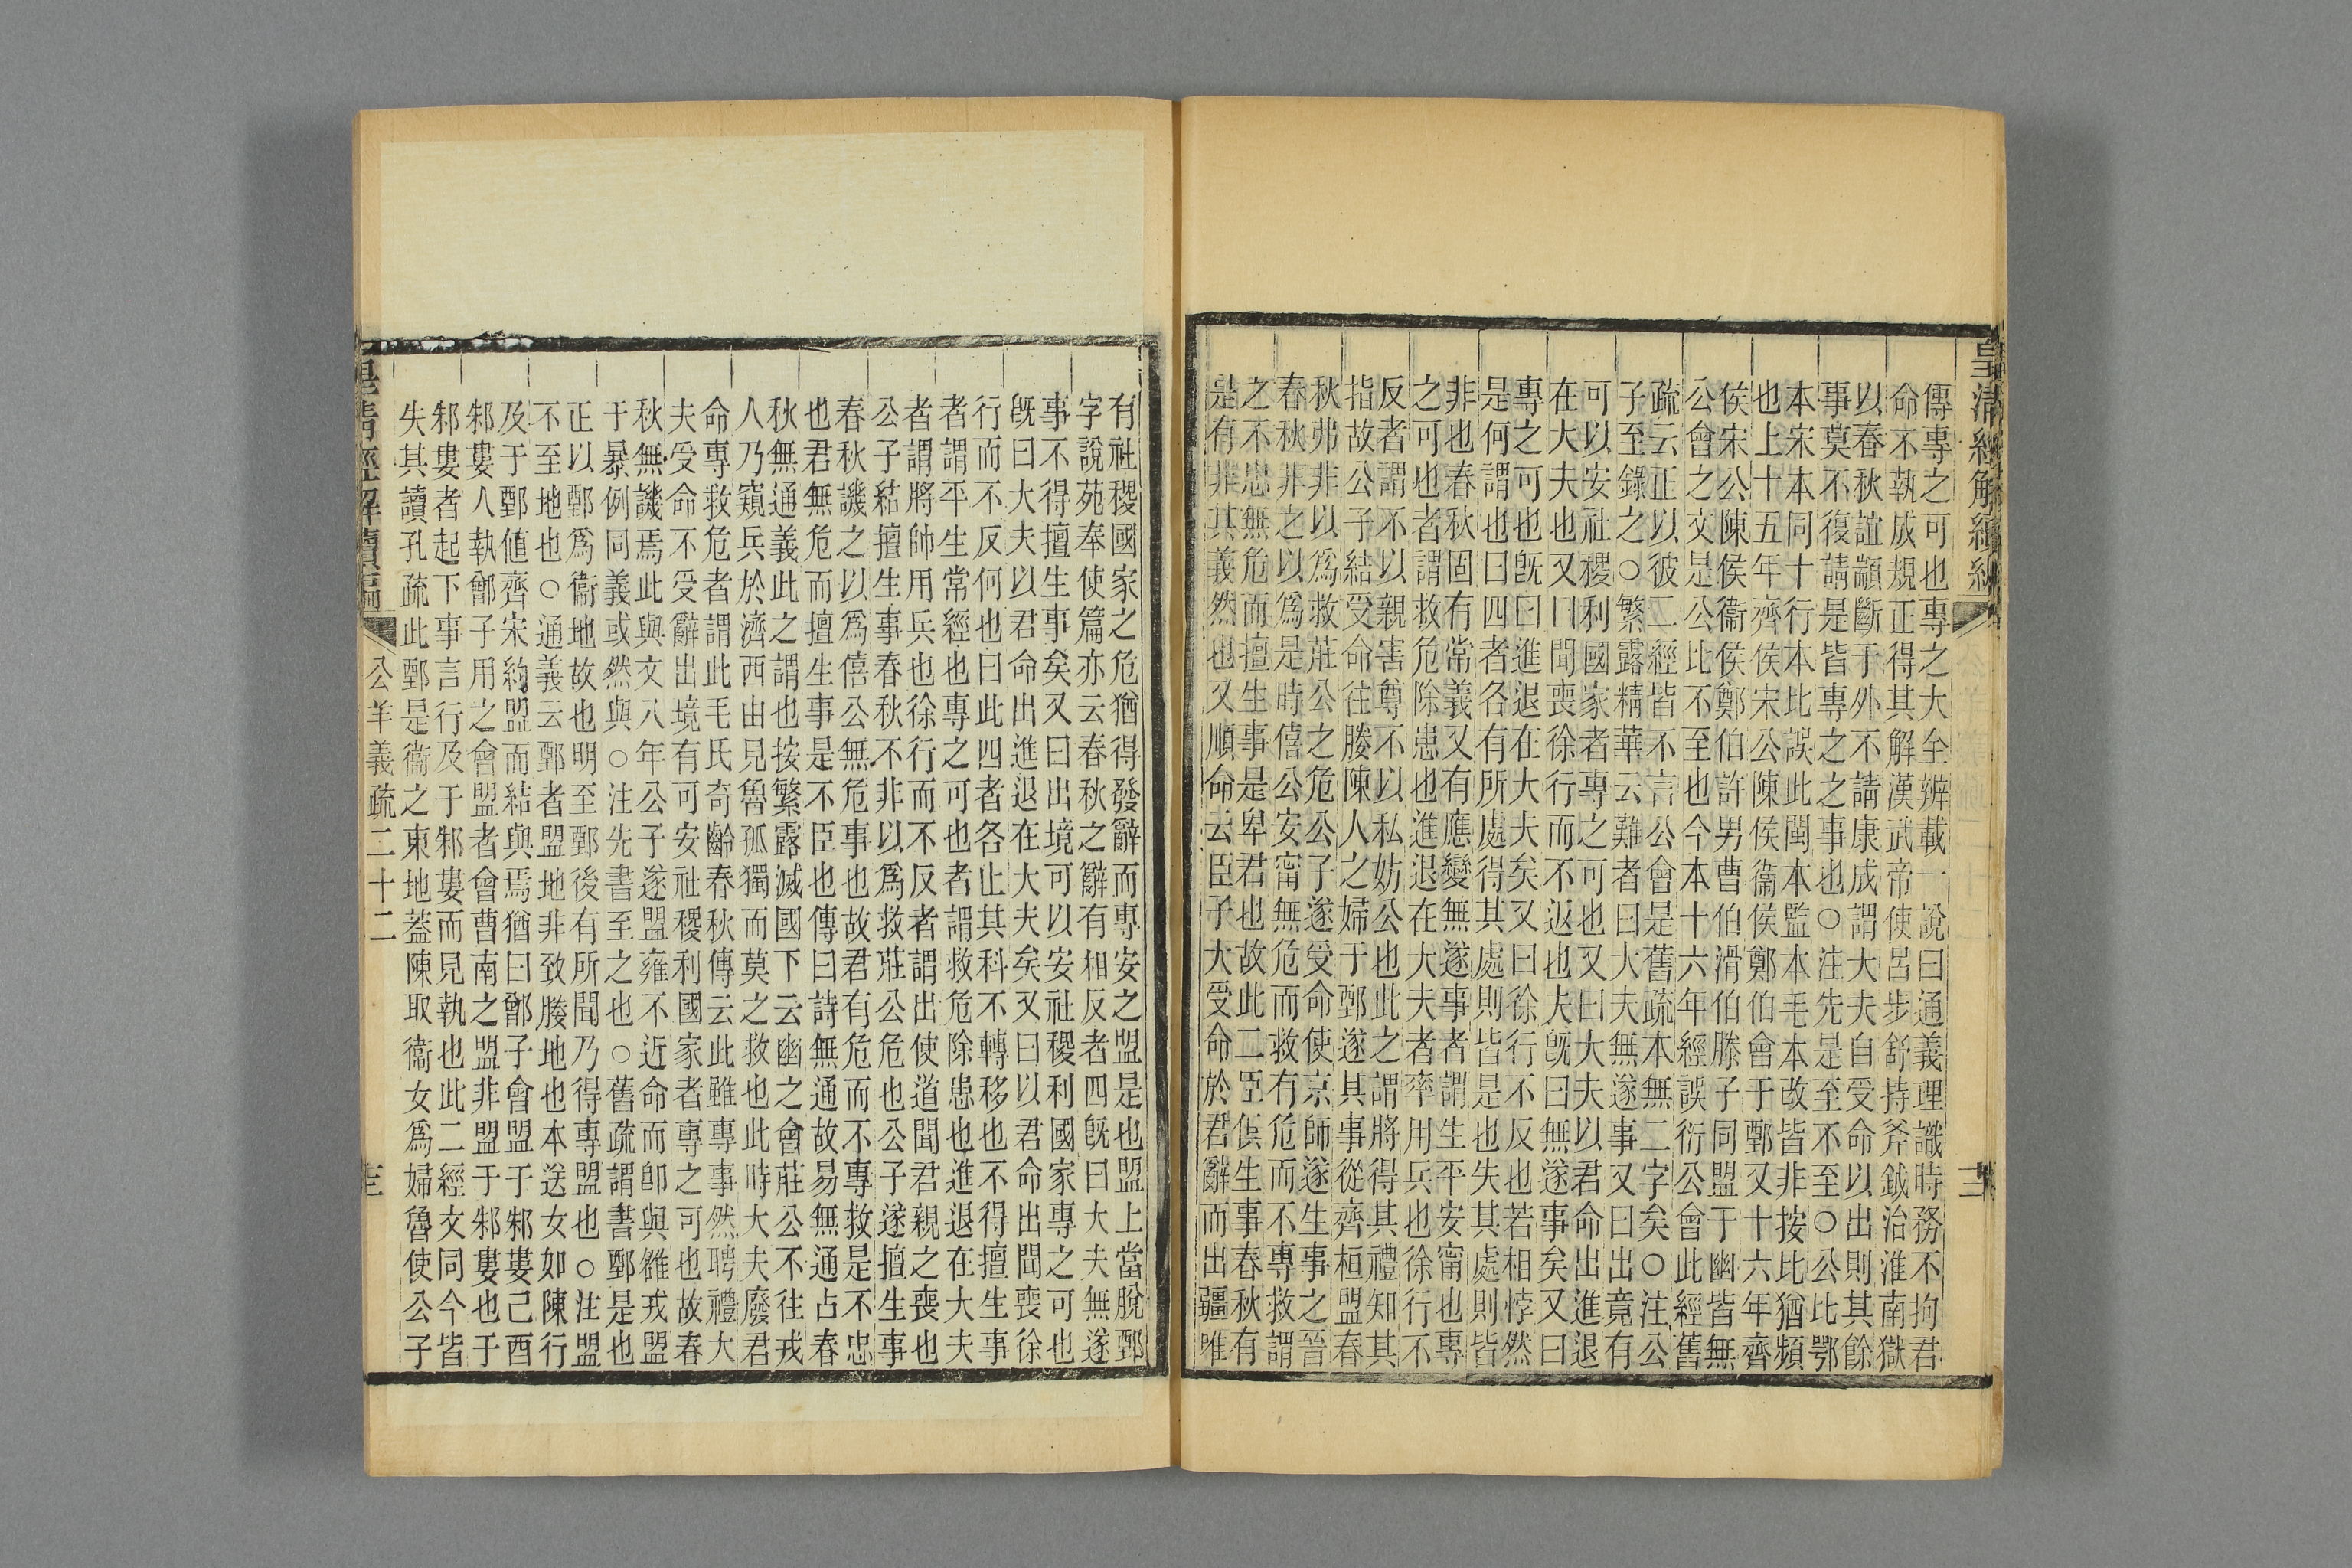 皇清經解續編
傳專之可也專之大全辨載一說曰通義理識時務不拘君
命不執成規正得其解漢武帝使呂步舒持斧鉞治淮南獄
以春秋誼顓斷于外不請康成謂大夫自受命以出則其餘
事莫不復請是皆專之之事也○注先是至不至○公比鄂
本宋本同十行本比誤此閩本監本毛本改皆非按比猶頻
也上十五年齊侯宋公陳侯衞侯鄭伯會于鄄又十六年齊
侯宋公陳侯衞侯鄭伯許男曹伯滑伯滕子同盟于幽皆無
公會之文是公比不至也今本十六年經誤衍公會此經舊
疏云正以彼二經皆不言公會是舊疏本無二字矣○注公
子至錄之○繁露精華云難者曰大夫無遂事又曰出竟有
可以安社稷利國家者專之可也又曰大夫以君命出進退
在大夫也又曰聞喪徐行而不返也夫旣曰無遂事矣又曰
專之可也旣曰進退在大夫矣又曰徐行不反也若相悖然
是何謂也曰四者各有所處得其處則皆是也失其處則皆
非也春秋固有常義又有應變無遂事者謂生平安甯也專
之可也者謂救危除患也進退在大夫者率用兵也徐行不
反者謂不以親害尊不以私妨公也此之謂將得其禮知其
指故公子結受命往媵陳人之婦于鄄遂其事從齊桓盟春
秋弗非以爲救莊公之危公子遂受命使京師遂生事之晉
春秋非之以爲是時僖公安甯無危而救有危而不專救謂
之不忠無危而擅生事是卑君也故此二臣俱生事春秋有
是有非其義然也又順命云臣子大受命於君辭而出疆唯
有社稷國家之危猶得發辭而專安之盟是也盟上當脫鄄
字說苑奉使篇亦云春秋之辭有相反者四旣曰大夫無遂
事不得擅生事矣又曰出境可以安社稷利國家專之可也
旣曰大夫以君命出進退在大夫矣又曰以君命出聞喪徐
行而不反何也曰此四者各止其科不轉移也不得擅生事
者謂平生常經也專之可也者謂救危除患也進退在大夫
者謂將帥用兵也徐行而不反者謂出使道聞君親之喪也
公子結擅生事春秋不非以爲救莊公危也公子遂擅生事
春秋譏之以爲僖公無危事也故君有危而不專救是不忠
也君無危而擅生事是不臣也傳曰詩無通故易無通占春
秋無通義此之謂也按繁露滅國下云幽之會莊公不往戎
人乃窺兵於濟西由見魯孤獨而莫之救也此時大夫廢君
命專救危者謂此毛氏奇齡春秋傳云此雖專事然聘禮大
夫受命不受辭出境有可安社稷利國家者專之可也故春
秋無譏焉此與文八年公子遂盟雍不近命而卽與雒戎盟
于暴例同義或然與○注先書至之也○舊疏謂書鄄是也
正以鄄爲衞地故也明至鄄後有所聞乃得專盟也○注盟
不至地也○通義云鄄者盟地非致媵地也本送女如陳行
及于鄄値齊宋約盟而結與焉猶曰鄫子會盟于邾婁己酉
邾婁人執鄫子用之會盟者會曹南之盟非盟于邾婁也于
邾婁者起下事言行及于邾婁而見執也此二經文同今皆
失其讀孔疏此鄄是衞之東地蓋陳取衞女爲婦魯使公子
皇清經解續編
公羊義疏二十二